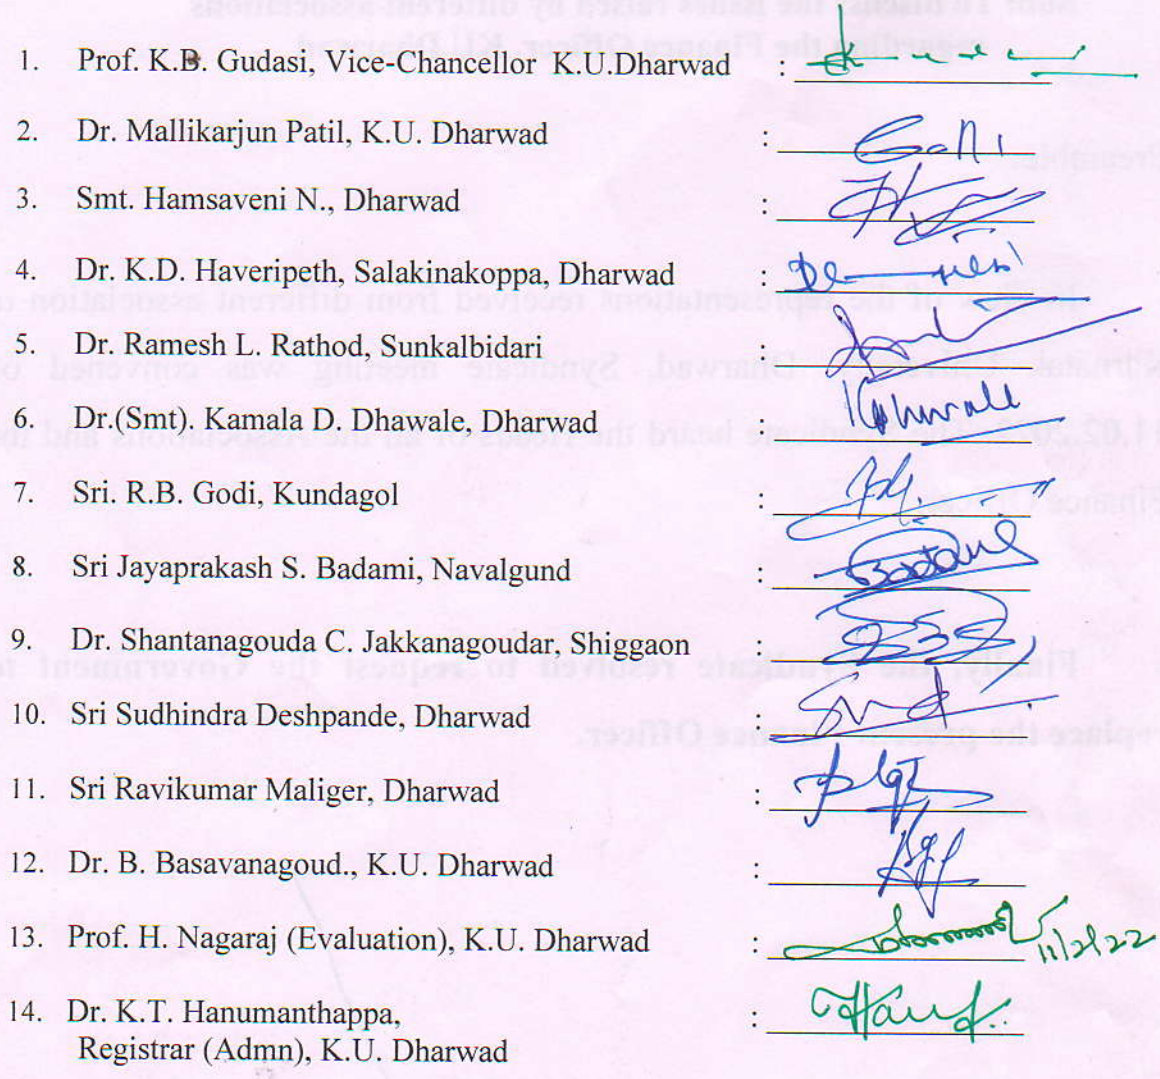 1. Prof. K.B. Gudasi, Vice-Chancellor K.U.Dharwad :
2. Dr. Mallikarjun Patil, K.U. Dharwad :
3. Smt. Hamsaveni N., Dharwad :
4. Dr. K.D. Haveripeth, Salakinakoppa, Dharwad :
5. Dr. Ramesh L. Rathod, Sunkalbidari :
6. Dr.(Smt). Kamala D. Dhawale, Dharwad :
7. Sri. R.B. Godi, Kundagol :
8. Sri Jayaprakash S. Badami, Navalgund :
9. Dr. Shantanagouda C. Jakkanagoudar, Shiggaon :
10. Sri Sudhindra Deshpande, Dharwad :
11. Sri Ravikumar Maliger, Dharwad :
12. Dr. B. Basavanagoud., K.U. Dharwad :
13. Prof. H. Nagaraj (Evaluation), K.U. Dharwad : 11/2/22
14. Dr. K.T. Hanumanthappa, :
Registrar (Admn), K.U. Dharwad